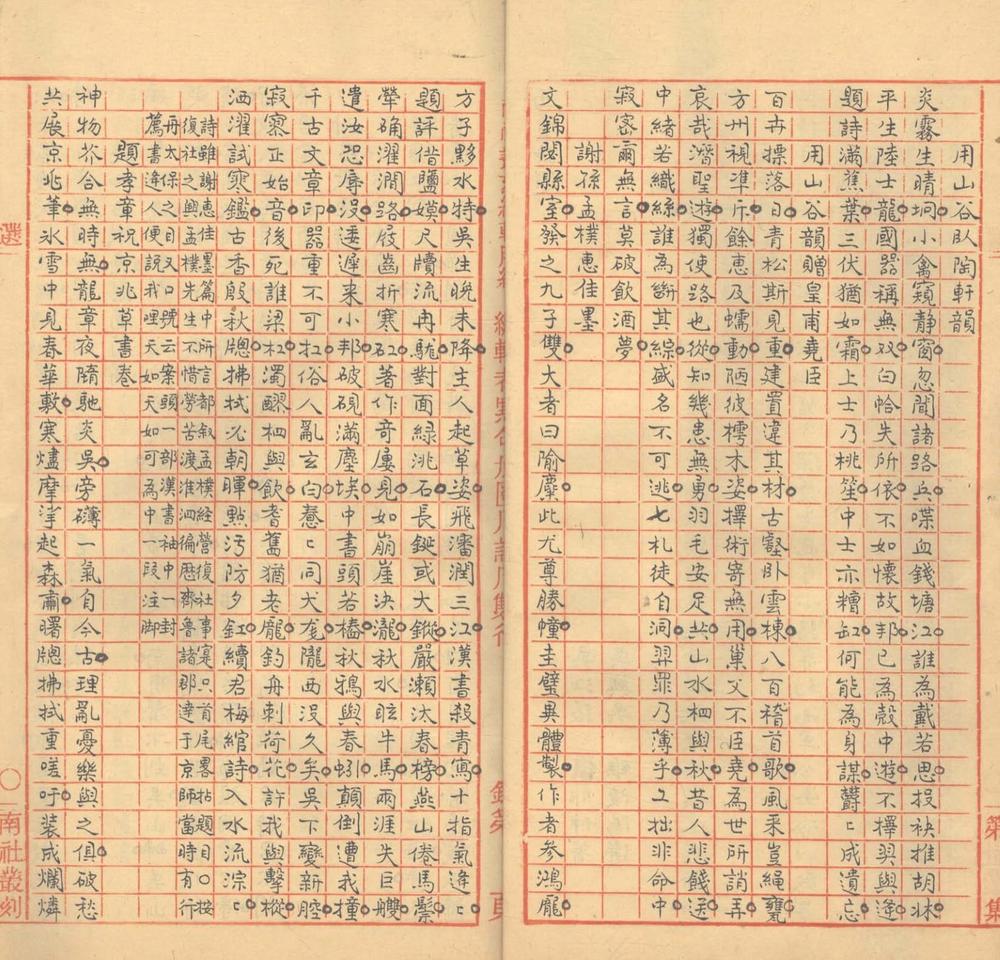 用山谷臥陶軒韻
炎霧生晴坰小禽窺静窗忽聞諸路兵喋血錢塘江誰為戴若思投袂推胡牀
平生陸士龍國器稱無双白帢失所依不如懷故邦已為彀中遊不擇羿與逄
題詩滿蕉葉三伏猶如霜上士乃桃笙中士亦糟缸何能為身謀欝〻成遺忘
用山谷韻贈皇甫堯臣
百卉摽落日青松斯見重建置違其材古壑卧雲棟八百稽首歌風采豈繩甕
方州視準斤餘惠及蠕動陋彼樗木姿擇術寄無用巢父不臣堯為世所誚弄
哀哉濳聖遊獨使路也從知幾患無勇羽毛安足共山水梱與秋昔人悲餞送
中緒若織絲誰為斷其綜盛名不可逃七札徒自洞羿罪乃薄乎工拙非命中
寂寥爾無言莫破飲酒夢
謝孫孟樸惠佳墨
文錦閟縣室發之九子雙大者曰隃麋此尤尊勝幢圭璧異體製作者參鴻龐
方子黟水特吳生晚未降主人起草姿飛瀋潤三江漢書殺青寫十指氣逄〻
題評借鹽嫫尺牘流冉駹對面緑洮石長鋋或大鏦嚴瀨汰春榜燕山倦馬鬃
犖确濯澗路屐齒折寒矼著作奇屢見如崩崖決瀧秋水眩牛馬兩涯失巨艭
遺汝恐辱没逶遲来小邦破硯滿塵埃中書頭若樁秋鴉與春蚓顛倒遭我撞
千古文章印器重不可扛俗人亂玄白惷〻同犬奎隴西没久矣吳下變新腔
寂寥正始音後死誰梁杠濁醪梱與飲耆舊猶老龐釣舟刺荷花許我與擊樅
洒濯試寒鑑古香殷秋牕拂拭必朝暉點污防夕釭續君梅綰詩入水流淙〻
詩雖謝惠佳墨篇中所言都叙孟樸経營復社事寔只首尾畧拈題目〇按
復社之興孟樸先生不惜勞苦渡淮泗徧歴齊魯諸郡達于京師當時有行
再太保之目又口號云案頭一部漢書袖中一封
薦書逄人便說我哩天如天如可為中一段注脚
題孝章祝京兆草書卷
神物芥合無時無龍章夜隋馳炎吳旁礴一氣自今古理亂憂樂與之俱破愁
共展京兆筆氷雪中見春華敷寒燼摩挲起森肅曙牕拂拭重嗟吁装成爛燐
選
〇
南社叢刻
第
集